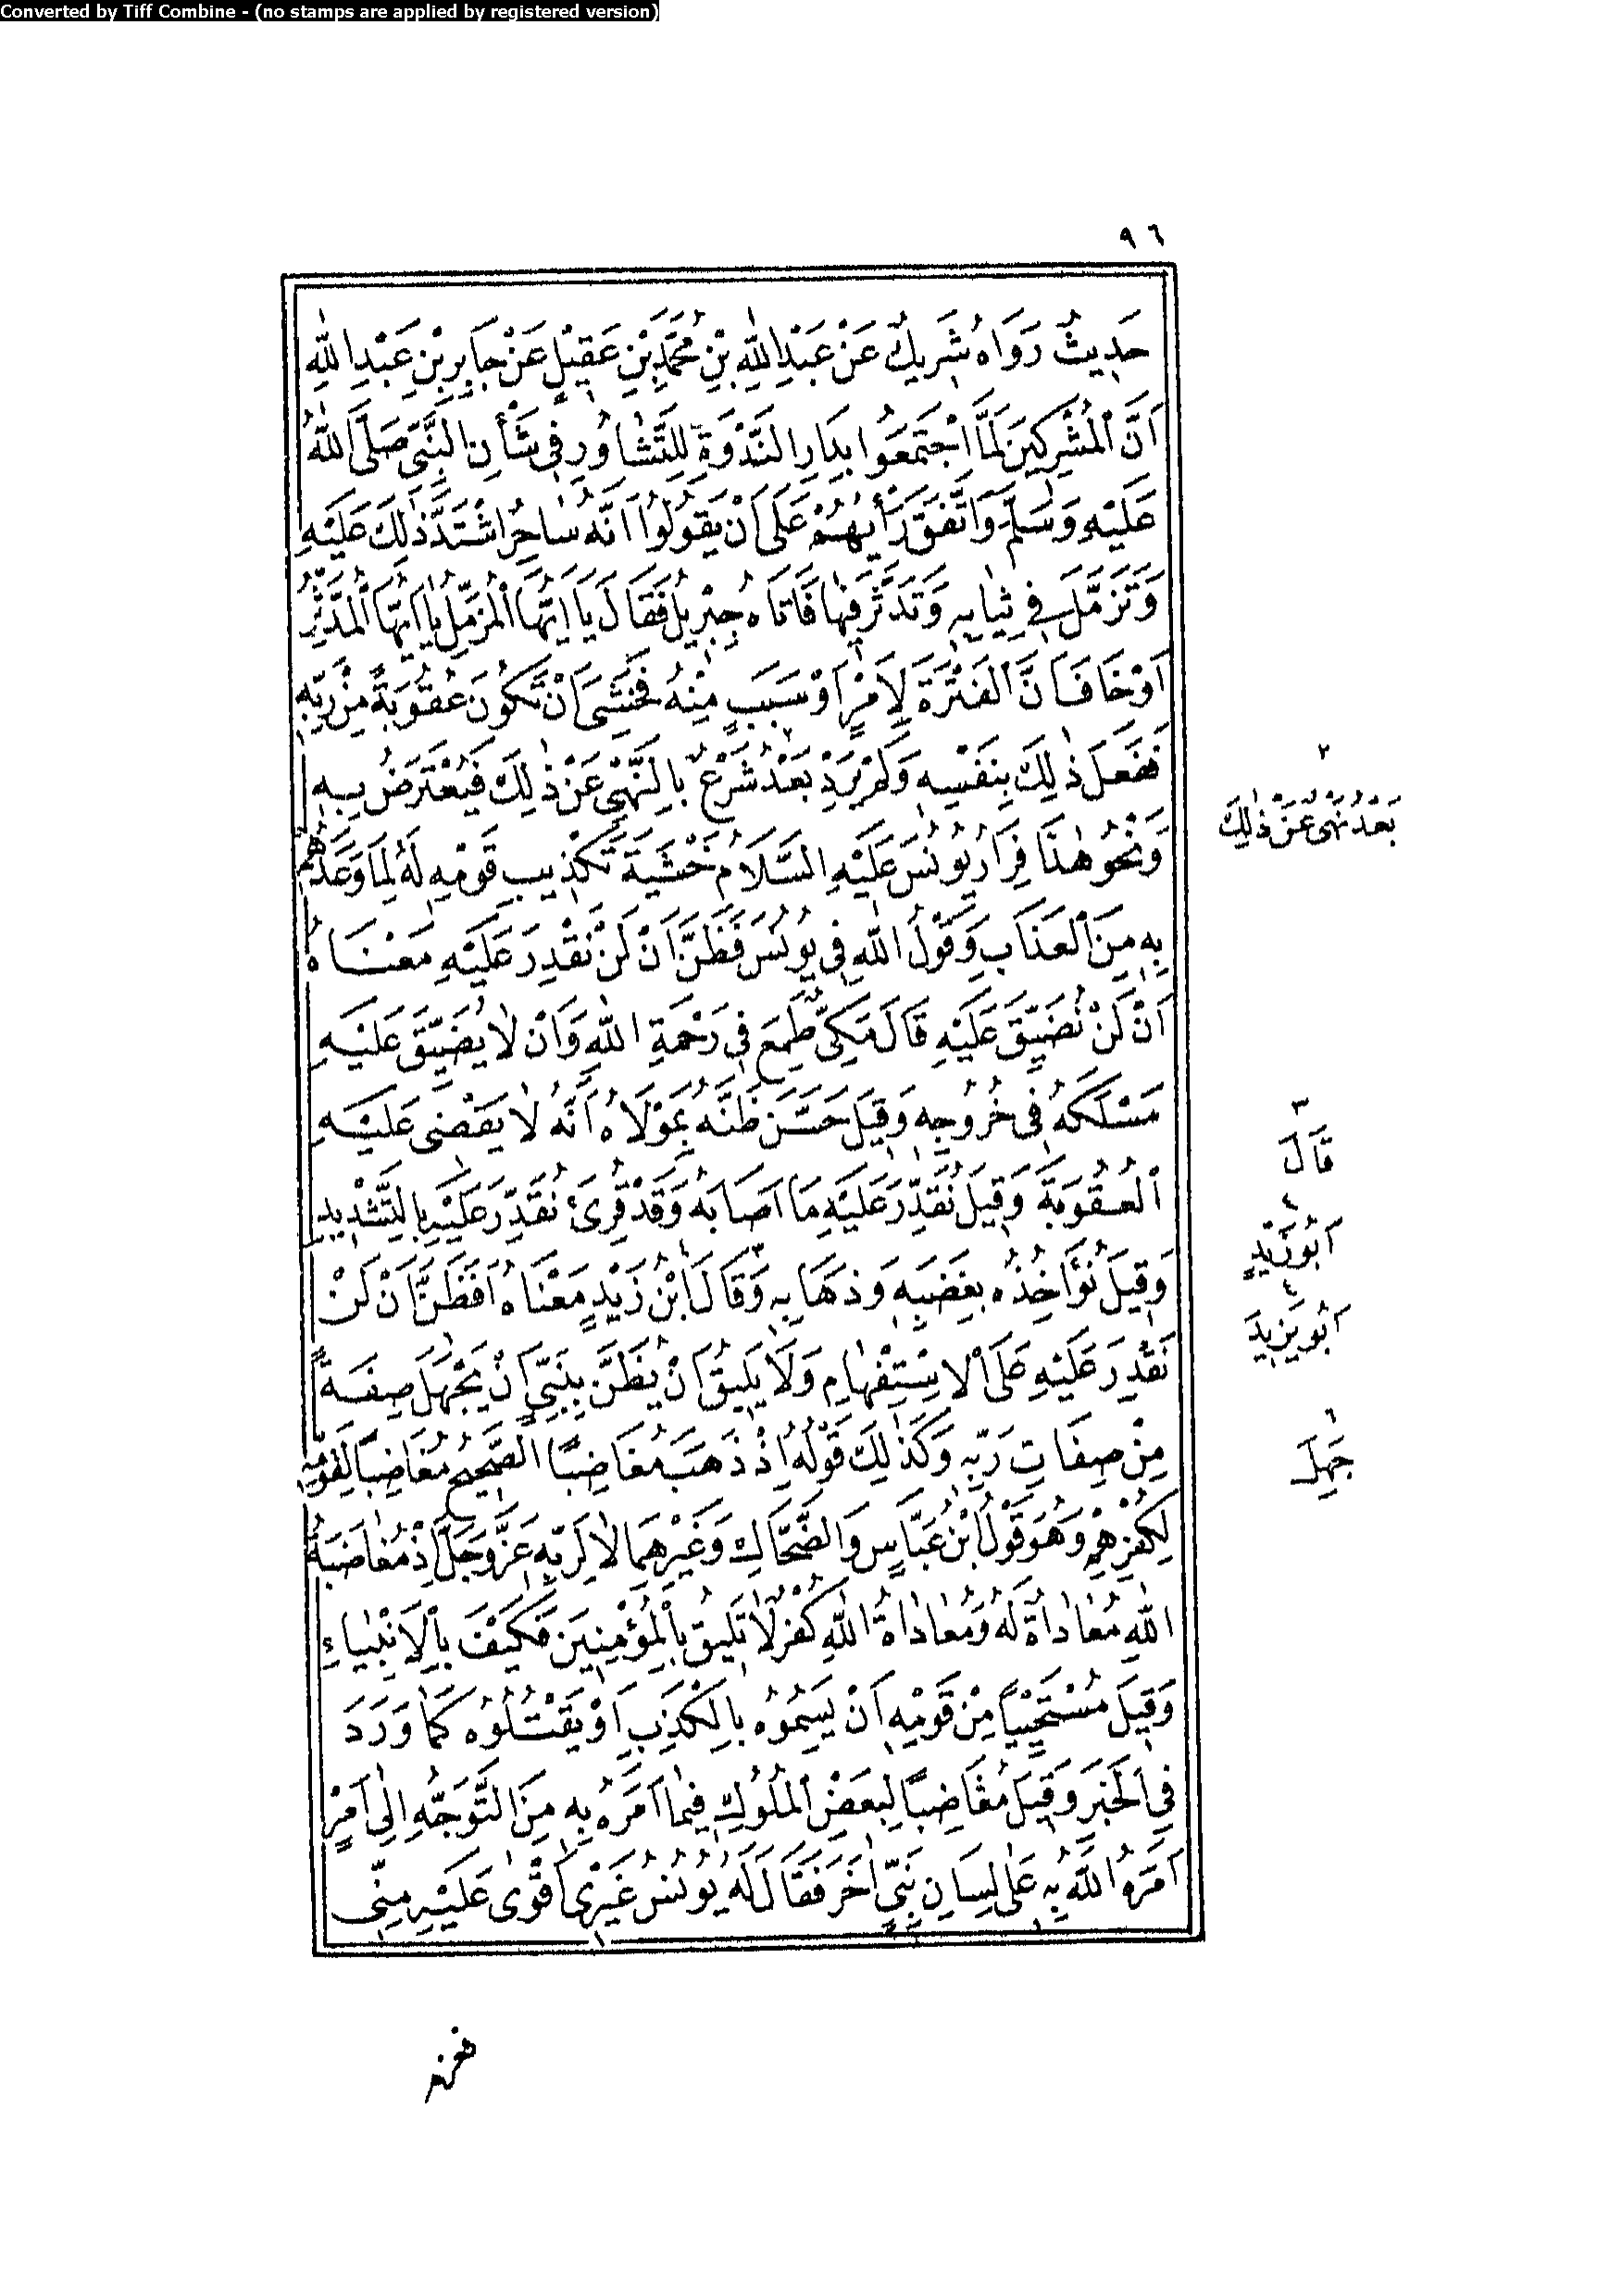 Converted by Tiff Combine - (no stamps are applied by registered version)
٩٦
حَدِيثٌ رَوَاهُ شَرِيكٌ عَنْ عَبْدِ اللّٰهِ بْنِ مُحَمَّدِ بْنِ عَقِيلٍ عَنْ جَابِرِ بْنِ عَبْدِ اللّٰهِ
اَنَّ الْمُشْرِكِينَ لَمَّا اجْتَمَعُوا بِدَارِ النَّدْوَةِ لِلتَّشَاوُرِ فِى شَأْنِ النَّبِىِّ صَلَّى اللّٰهُ
عَلَيْهِ وَسَلَّمَ وَاتَّفَقَ رَأْيُهُمْ عَلَى اَنْ يَقُولُوا اَنَّهُ سَاحِرٌ اشْتَدَّ ذٰلِكَ عَلَيْهِ
وَتَزَمَّلَ فِى ثِيَابِهِ وَتَدَثَّرَ فِيهَا فَاَتَاهُ جِبْرِيلُ فَقَالَ يَا اَيُّهَا الْمُزَّمِّلُ يَا اَيُّهَا الْمُدَّثِّرُ
اَوْ خَافَ اَنَّ الْفَتْرَةَ لِاَمْرٍ اَوْ سَبَبٍ مِنْهُ فَخَشِىَ اَنْ تَكُونَ عُقُوبَةً مِنْ رَبِّهِ
فَفَعَلَ ذٰلِكَ بِنَفْسِهِ وَلَمْ يَرِدْ بَعْدُ شَرْعٌ بِالنَّهْىِ عَنْ ذٰلِكَ فَيُعْتَرَضُ بِهِ
٢
بَعْدُ نَهْىٌ عَنْ ذٰلِكَ
وَنَحْوُ هٰذَا فِرَارُ يُونُسَ عَلَيْهِ السَّلَامُ خَشْيَةَ تَكْذِيبِ قَوْمِهِ لَهُ لِمَا وَعَدَهُمْ
بِهِ مِنَ الْعَذَابِ وَقَوْلُ اللّٰهِ فِى يُونُسَ فَظَنَّ اَنْ لَنْ نَقْدِرَ عَلَيْهِ مَعْنَاهُ
اَنْ لَنْ نُضَيِّقَ عَلَيْهِ قَالَ مَكِّىٌّ طَمِعَ فِى رَحْمَةِ اللّٰهِ وَاَنْ لَا يُضَيِّقَ عَلَيْهِ
مَسْلَكَهُ فِى خُرُوجِهِ وَقِيلَ حَسَّنَ ظَنَّهُ بِمَوْلَاهُ اَنَّهُ لَا يَقْضِى عَلَيْهِ
الْعُقُوبَةَ وَقِيلَ نُقَدِّرَ عَلَيْهِ مَا اَصَابَهُ وَقَدْ قُرِئَ نُقَدِّرَ عَلَيْهِ بِالتَّشْدِيدِ
٣
قَالَ
٤
اَبُو زَيْدٍ
وَقِيلَ نُؤَاخِذُهُ بِغَضَبِهِ وَذَهَابِهِ وَقَالَ ابْنُ زَيْدٍ مَعْنَاهُ اَفَظَنَّ اَنْ لَنْ
٤
اَبُو يَزِيدَ
نَقْدِرَ عَلَيْهِ عَلَى الْاِسْتِفْهَامِ وَلَا يَلِيقُ اَنْ يُظَنَّ بِنَبِىٍّ اَنْ يَجْهَلَ صِفَةً
مِنْ صِفَاتِ رَبِّهِ وَكَذٰلِكَ قَوْلُهُ اِذْ ذَهَبَ مُغَاضِبًا الصَّحِيحُ مُغَاضِبًا لِقَوْمِهِ
٦
جَهِلَ
لِكُفْرِهِمْ وَهُوَ قَوْلُ ابْنِ عَبَّاسٍ وَالضَّحَّاكِ وَغَيْرِهِمَا لَا لِرَبِّهِ عَزَّ وَجَلَّ اِذْ مُغَاضَبَةُ
اللّٰهِ مُعَادَاةٌ لَهُ وَمُعَادَاةُ اللّٰهِ كُفْرٌ لَا تَلِيقُ بِالْمُؤْمِنِينَ فَكَيْفَ بِالْاَنْبِيَاءِ
وَقِيلَ مُسْتَحْيِيًا مِنْ قَوْمِهِ اَنْ يَسِمُوهُ بِالْكَذِبِ اَوْ يَقْتُلُوهُ كَمَا وَرَدَ
فِى الْخَبَرِ وَقِيلَ مُغَاضِبًا لِبَعْضِ الْمُلُوكِ فِيمَا اَمَرَهُ بِهِ مِنَ التَّوَجُّهِ اِلَى اَمْرٍ
اَمَرَهُ اللّٰهُ بِهِ عَلَى لِسَانِ نَبِىٍّ اٰخَرَ فَقَالَ لَهُ يُونُسُ غَيْرِى اَقْوٰى عَلَيْهِ مِنِّى
فعزم